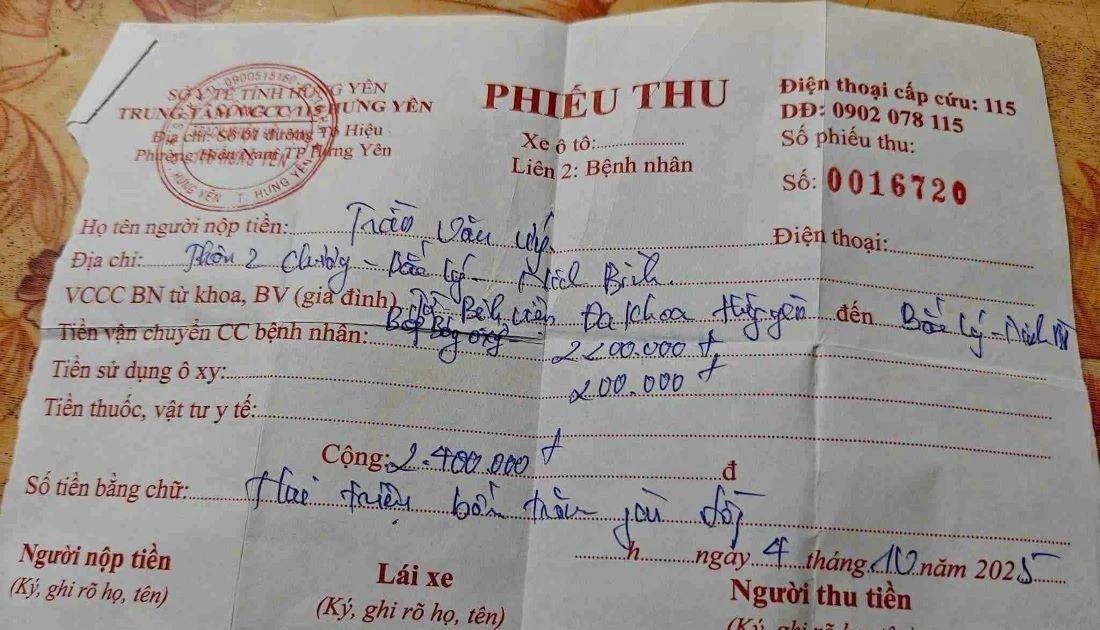 SỞ Y TẾ TỈNH HƯNG YÊN
TRUNG TÂM VCCC 115 HƯNG YÊN
Địa chỉ: Số 01 đường Tô Hiệu
Phường Hiến Nam TP Hưng Yên
0900515160
HƯNG YÊN T. HƯNG YÊN
PHIẾU THU
Xe ô tô:
Liên 2: Bệnh nhân
Điện thoại cấp cứu: 115
DĐ: 0902 078 115
Số phiếu thu:
Số: 0016720
Họ tên người nộp tiền: Trần Văn Điện thoại:
Địa chỉ: Thôn 2 - Bắc Lý - Ninh Bình
VCCC BN từ khoa, BV (gia đình) Bệnh viện Đa khoa Hưng Yên đến Bắc Lý - Ninh
Tiền vận chuyển CC bệnh nhân: 2200.000đ
Tiền sử dụng ô xy: 200.000đ
Tiền thuốc, vật tư y tế:
Cộng: 2.400.000đ đ
Số tiền bằng chữ: Hai triệu bốn trăm đồng
h ngày 4 tháng 10 năm 2025
Người nộp tiền
(Ký, ghi rõ họ, tên)
Lái xe
(Ký, ghi rõ họ, tên)
Người thu tiền
(Ký, ghi rõ họ, tên)